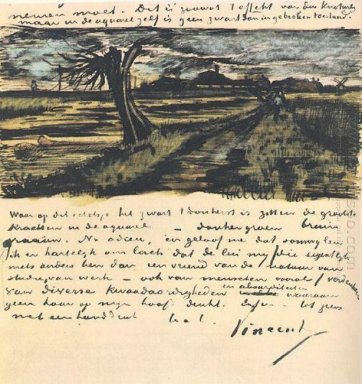 moet. Dit is zoowat 't effect van den Knotwilg
maar in de aquarel zelf is geen zwart dan in gebroken toestand.
Waar op dit schetsje het zwart 't donkerst is zitten de grootste
krachten in de aquarel — donkergroen bruin
graauw. Nu adieu, en geloof me dat soms
ik er hartelijk om lach dat de lui mij die eigentlijk
niets anders ben dan een vriend van de natuur van
studie van werk — ook van menschen vooral verdenken
van diverse kwaadaardigheden en absurditeiten waaraan
geen haar op mijn hoofd denkt. Enfin — tot ziens
met een handdruk t. à t.
Vincent